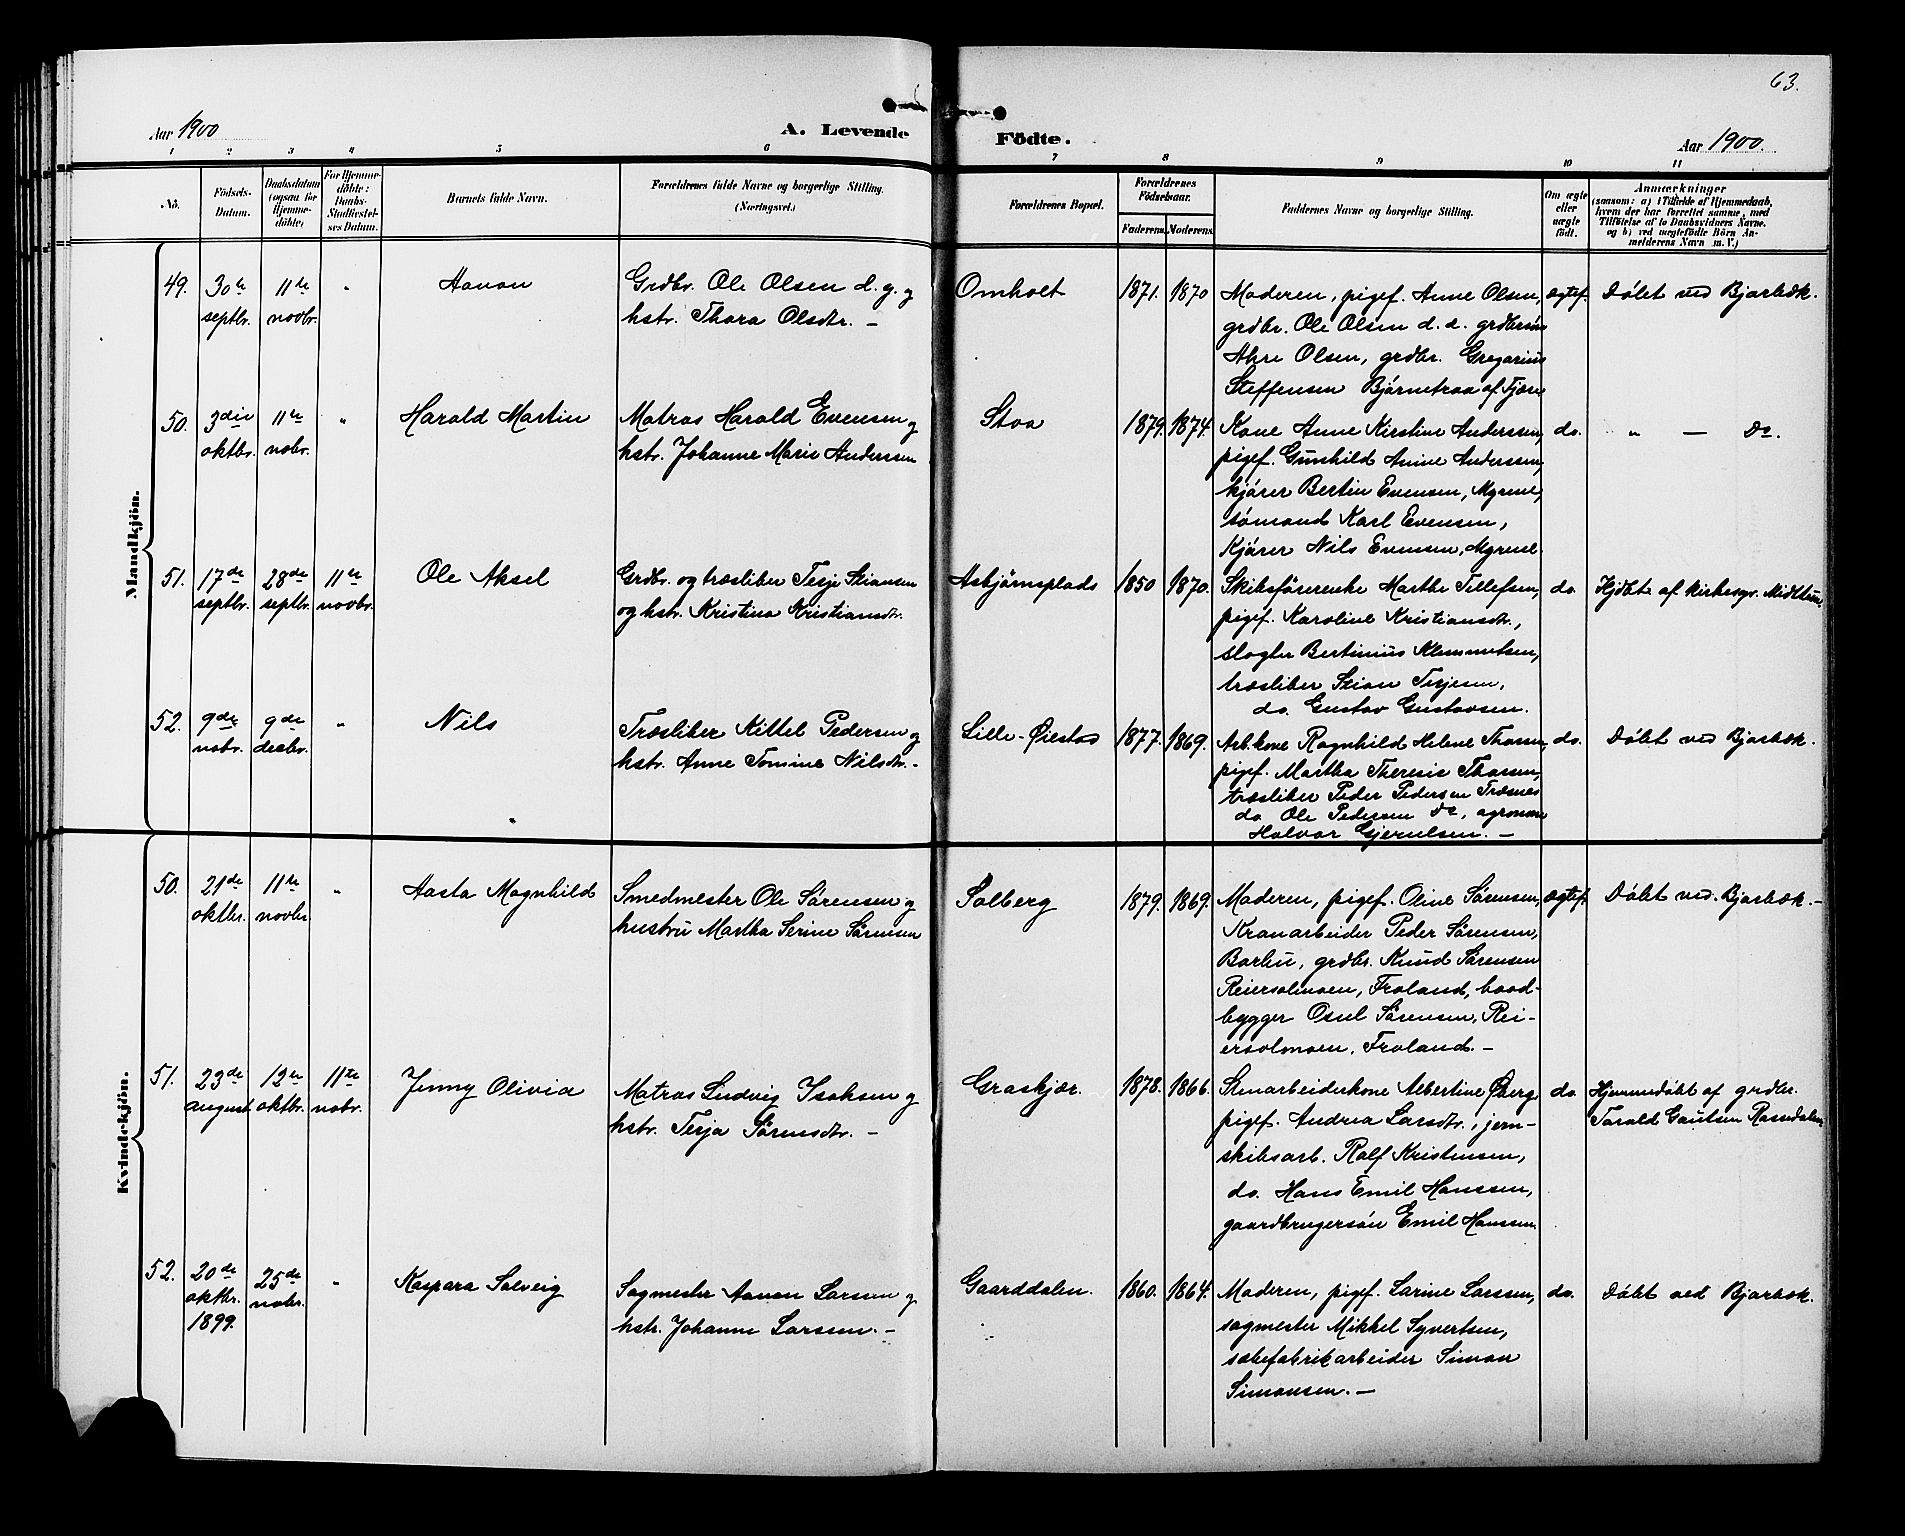 63.
Aar 1900
A. Levende Födte.
Aar 1900.
1 2 3 4 5 6 7 8 9 10 11
No.
Födsels-Datum.
Daabsdatum (ogsaa for Hjemme-döbte)
For Hjemme-döbte: Daabs-Stadfæstel-ses Datum.
Barnets fulde Navn.
Forældrenes fulde Navne og borgerlige Stilling. (Næringsvei.)
Forældrenes Bopæl.
Forældrenes Födselsaar.
Faderens. Moderens.
Faddernes Navne og borgerlige Stilling.
Om ægte eller uægte födt.
Anmærkninger
(saasom: a) i Tilfælde af Hjemmedaab, hvem der har forrettet samme, med Tilföielse af to Daabsvidners Navne, og b) ved uægtefödte Börn An-melderens Navn m. V.)
Mandkjön.
49.
30te septbr.
11te novbr.
"
Aanon
Grdbr. Ole Olsen d. y. og
hstr. Thora Olsdtr. —
Omholt
1871. 1870
Moderen, pigef. Anne Olsen,
grdbr. Ole Olsen d. e. grdbrsøn
Akre Olsen, grdbr. Gregarius
Steffensen Bjørnetraa af Fjære
ægtef.
Døbt ved Bjarbæk.
50.
3die oktbr.
11te nobr.
"
Harald Martin
Matros Harald Evensen og
hstr. Johanne Marie Anderssen
Stoa
1879. 1874.
Kone Anne Kirstine Anderssen,
pigef. Gunhild Anine Anderssen,
kjører Bertin Evensen, Myrene,
sømand Karl Evensen,
Kjører Nils Evensen, Myrene.
do.
" — Do.
51.
17de septbr.
28de septbr.
11te novbr.
Ole Aksel
Grdbr. og træsliber Terje Stiansen
og hstr. Kristina Kristiansdtr.
Asbjørnsplads
1850 1870.
Skibsførerenke Marthe Tellefsen,
pigef. Karoline Kristiansdtr.,
slagter Bertinius Klemmetsen,
træsliber Stian Terjesen,
do. Gustav Gustavsen.
do.
Hjdbt af kirkesgr. Midttun.
52.
9de nobr.
9de decbr.
"
Nils
Træsliber Kittel Pedersen og
hstr. Anne Tomine Nilsdtr. —
Lille-Øiestad
1877. 1869.
Arb.kone Ragnhild Helene Thorsen,
pigef. Martha Theresie Thorsen,
træsliber Peder Pedersen Træsnes
do Ole Pedersen Do, agronom
Halvor Gjerulsen. —
do.
Døbt ved Bjarbæk.
Kvindekjön.
50.
21de oktbr.
11te novbr.
"
Aasta Magnhild
Smedmester Ole Sørensen og
hustru Martha Serine Sørensen
Solberg
1879. 1869.
Moderen, pigef. Oline Sørensen,
Kranarbeider Peder Sørensen,
Barbu, grdbr. Knud Sørensen
Reiersølmoen, Froland, baad-
bygger Osul Sørensen, Rei-
ersølmoen, Froland. —
ægtef.
Døbt ved. Bjarbæk. —
51.
23de august
12te oktbr.
11te nobr.
Jenny Olivia
Matros Ludvig Isaksen og
hstr. Terja Sørensdtr. —
Graskjær.
1878. 1866.
Stenarbeiderkone Albertine Øberg
pigef. Andrea Larsdtr., jern-
skibsarb. Rolf Kristensen,
do. Hans Emil Hanssen,
gaardbrugersøn Emil Hanssen.
do.
Hjemmedøbt af grdbr.
Tarald Gautsen Rasedalen
52.
20de oktbr. 1899.
25de nobr.
"
Kaspara Solveig
Sagmester Aanon Larsen og
hstr. Johanne Larssen. —
Gaarddalen.
1860. 1864.
Moderen, pigef. Larine Larssen,
sagmester Mikkel Syvertsen,
sæbefabrikarbeider Simon
Simonsen. —
do.
Døbt ved Bjarbæk.